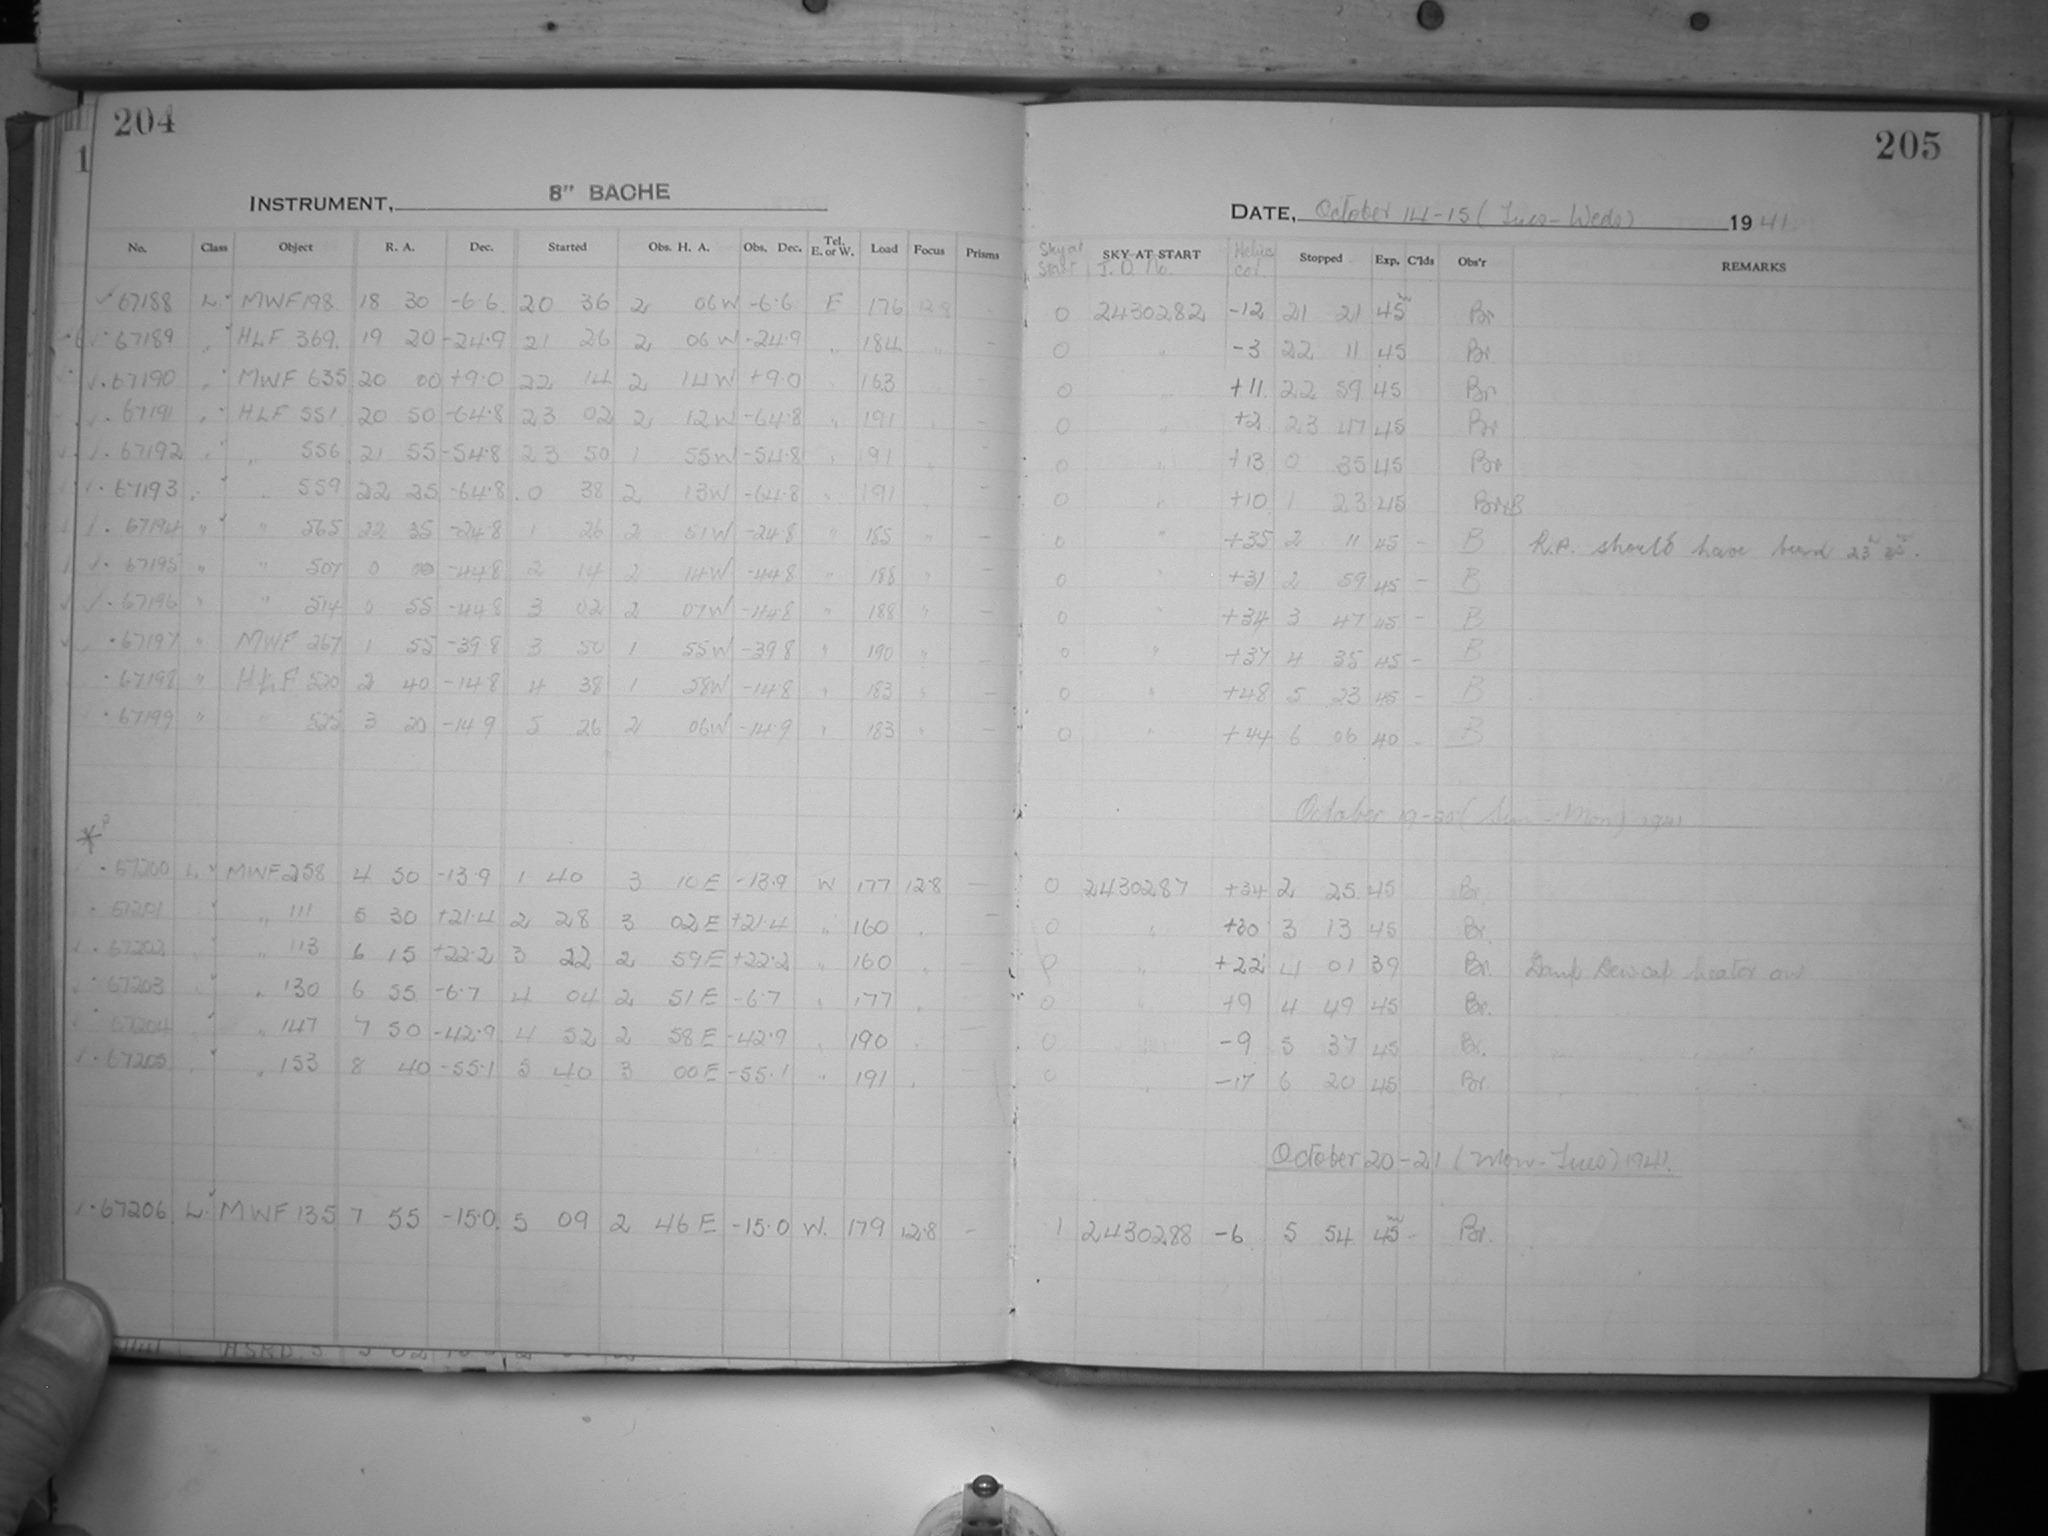 204
1
INSTRUMENT, 8" BACHE
No. Class Object R. A. Dec. Started Obs. H. A. Obs. Dec. Tel. E. or W. Load Focus Prisms
67188 L. MWF198. 18 30 -6.6 20 36 2 06W -6.6 E 176 12.8
67189 " HLF 369. 19 20 -24.9 21 26 2 06W -24.9 " 184 " -
67190 " MWF 635 20 00 +9.0 22 14 2 14W +9.0 " 163 -
67191 " HLF 551 20 50 -64.8 23 02 2 12W -64.8 " 191 " -
67192 " " 556 21 55 -54.8 23 50 1 55W -54.8 " 191 " -
67193 " " 559 22 25 -64.8 0 38 2 13W -64.8 " 191 " -
67194 " " 565 22 35 -24.8 1 26 2 51W -24.8 " 185 " -
67195 " " 507 0 00 -44.8 2 14 2 14W -44.8 " 188 " -
67196 " " 514 0 55 -44.8 3 02 2 07W -44.8 " 188 " -
67197 " MWF 267 1 55 -39.8 3 50 1 55W -39.8 " 190 " -
67198 " HLF 520 2 40 -14.8 4 38 1 58W -14.8 " 183 " -
67199 " " 525 3 20 -14.9 5 26 2 06W -14.9 " 183 " -
67200 L. MWF258 4 50 -13.9 1 40 3 10E -13.9 W 177 12.8 -
67201 " 111 5 30 +21.4 2 28 3 02E +21.4 " 160 " -
67202 " 113 6 15 +22.2 3 22 2 59E +22.2 " 160 " -
67203 " 130 6 55 -6.7 4 04 2 51E -6.7 " 177 "
67204 " 147 7 50 -42.9 4 52 2 58E -42.9 " 190 "
67205 " 153 8 40 -55.1 5 40 3 00E -55.1 " 191 "
67206 L. MWF 135 7 55 -15.0 5 09 2 46E -15.0 W. 179 12.8 -
205
DATE, October 14-15 (Tues-Weds) 1941
Sky at Start SKY AT START J. D. No. Helio cor. Stopped Exp. C'lds Obs'r REMARKS
0 2430282 -12 21 21 45m Br
0 " -3 22 11 45 Br.
0 " +11 22 59 45 Br
0 " +2 23 47 45 Br
0 " +13 0 35 45 Br
0 " +10 1 23 45 Br+B
0 " +35 2 11 45 - B R.A. should have been 23h 35m.
0 " +31 2 59 45 - B
0 " +34 3 47 45 - B
0 " +37 4 35 45 - B
0 " +48 5 23 45 - B
0 " +44 6 06 40 - B
October 19-20 (Sun-Mon) 1941
0 2430287 +34 2 25 45 Br.
0 " +20 3 13 45 Br.
" +22 4 01 39 Br. Damp Dewcap heater on
0 " +9 4 49 45 Br.
0 " -9 5 37 45 Br.
0 " -17 6 20 45 Br.
October 20-21 (Mon-Tues) 1941.
1 2430288 -6 5 54 45m - Br.